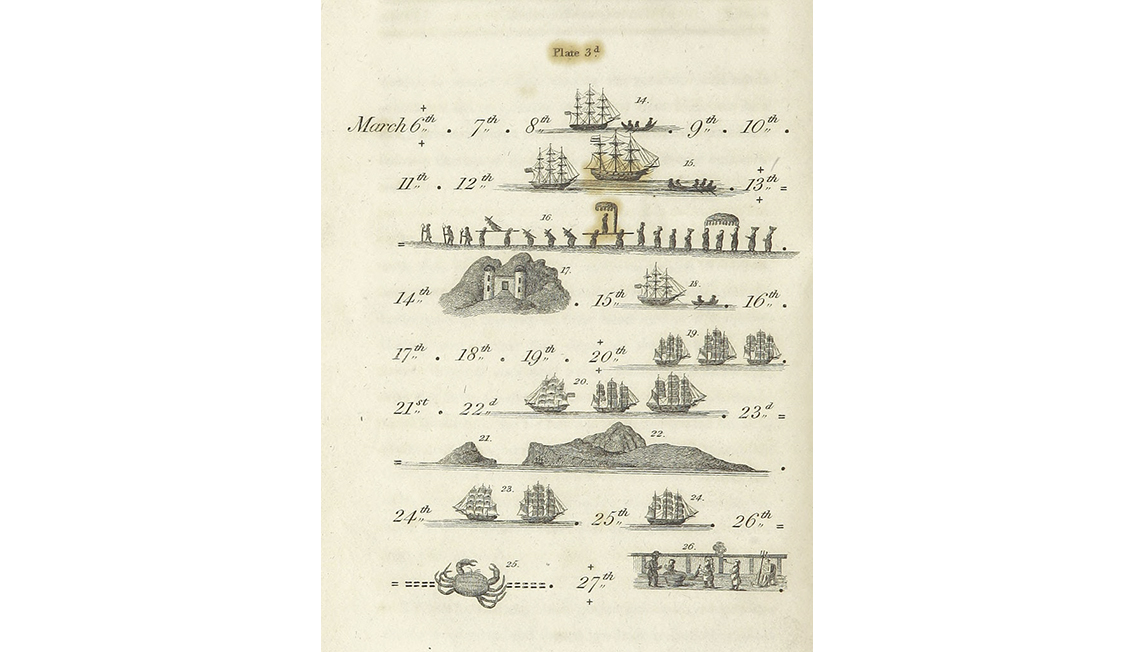 Plate 3d.
March 6th . 7th . 8th 14. . 9th . 10th .
11th . 12th 15. . 13th =
= 16. .
14th 17. . 15th 18. . 16th .
17th . 18th . 19th . 20th 19. .
21st . 22d 20. . 23d =
= 21. 22. .
24th 23. . 25th 24. . 26th =
= 25. . 27th 26. .